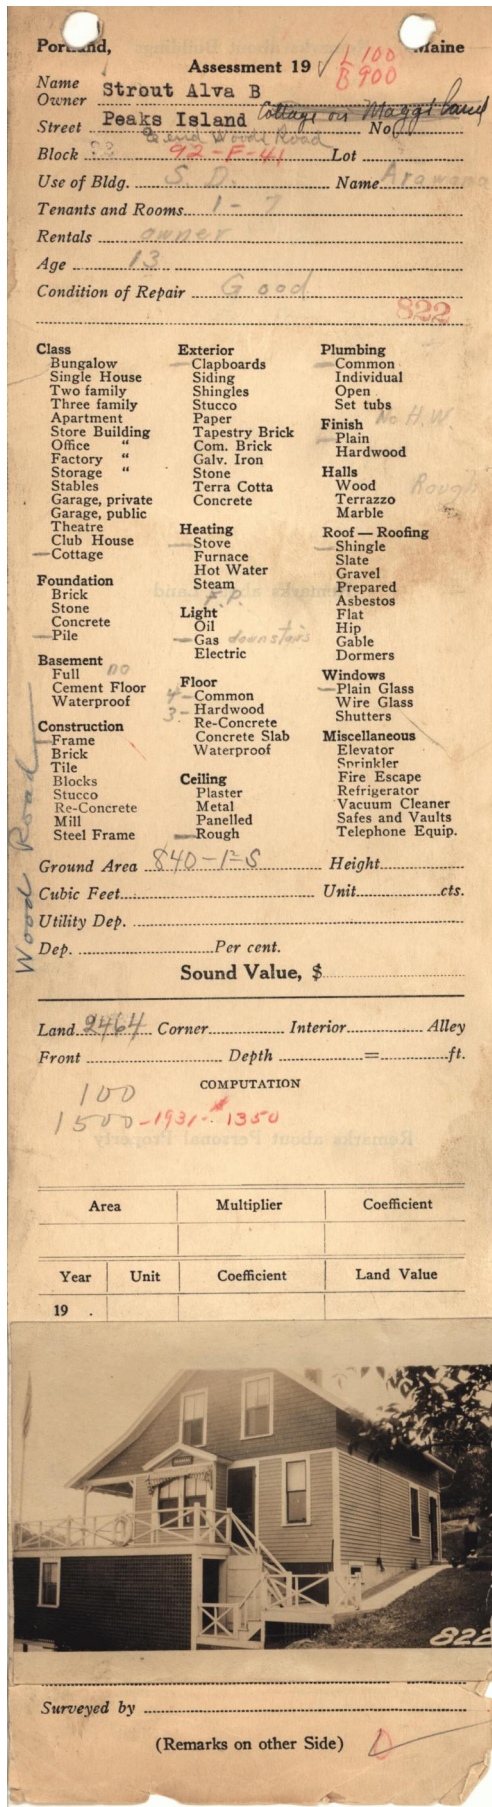 Portland, Maine
Assessment 19 ✓ L 100
B 900
Name
Owner Strout Alva B
Cottage on Maggi Land
Street Peaks Island No.
end Woods Road
Block 92-F-41 Lot
Use of Bldg. S. D. Name Arawana
Tenants and Rooms 1 - 7
Rentals owner
Age 13
Condition of Repair Good
822
Class
Bungalow
Single House
Two family
Three family
Apartment
Store Building
Office "
Factory "
Storage "
Stables
Garage, private
Garage, public
Theatre
Club House
Cottage
Foundation
Brick
Stone
Concrete
Pile
Basement
Full no
Cement Floor
Waterproof
Construction
Frame
Brick
Tile
Blocks
Stucco
Re-Concrete
Mill
Steel Frame
Exterior
Clapboards
Siding
Shingles
Stucco
Paper
Tapestry Brick
Com. Brick
Galv. Iron
Stone
Terra Cotta
Concrete
Heating
Stove
Furnace
Hot Water
Steam
F.P.
Light
Oil
Gas downstairs
Electric
Floor
4 - Common
3 - Hardwood
Re-Concrete
Concrete Slab
Waterproof
Ceiling
Plaster
Metal
Panelled
Rough
Plumbing
Common
Individual
Open
Set tubs
No H.W.
Finish
Plain
Hardwood
Halls
Wood Rough
Terrazzo
Marble
Roof — Roofing
Shingle
Slate
Gravel
Prepared
Asbestos
Flat
Hip
Gable
Dormers
Windows
Plain Glass
Wire Glass
Shutters
Miscellaneous
Elevator
Sprinkler
Fire Escape
Refrigerator
Vacuum Cleaner
Safes and Vaults
Telephone Equip.
Wood Road
Ground Area 840-1½S Height
Cubic Feet Unit cts.
Utility Dep.
Dep. Per cent.
Sound Value, $
Land 2464 Corner Interior Alley
Front Depth = ft.
COMPUTATION
100
1500 - 1931 - $1350
Remarks about Personal Property
Area Multiplier Coefficient
Year Unit Coefficient Land Value
19 .
822
Surveyed by
(Remarks on other Side)
D